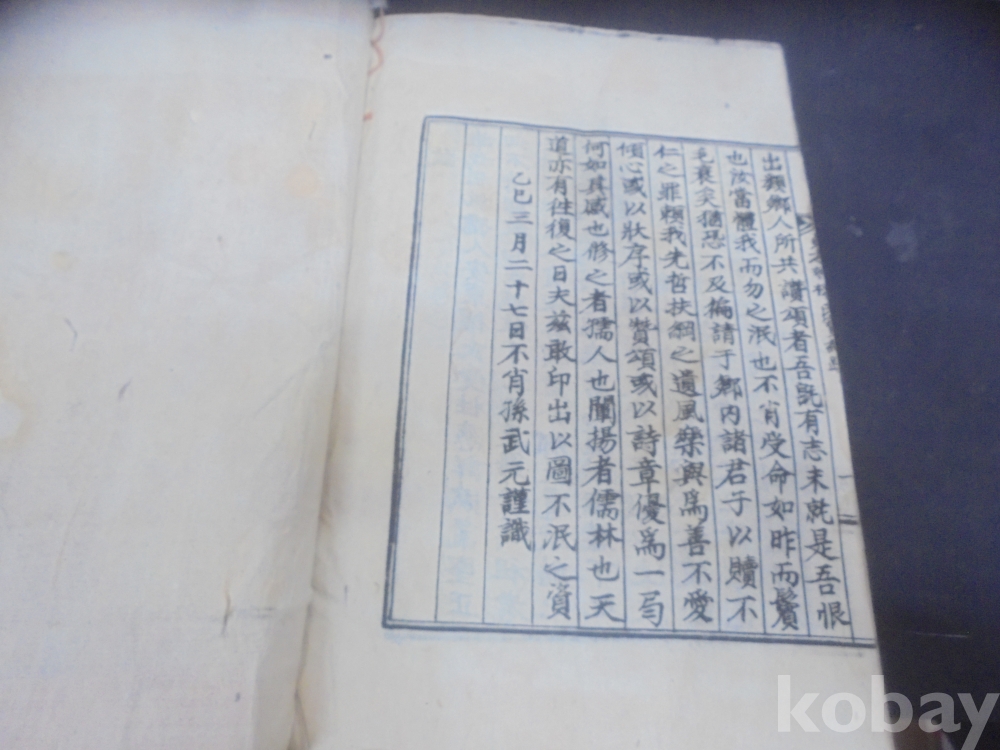 出類鄉人所共讚頌者吾既有志未就是吾恨
也汝當體我而勿之泯也不肖受命如昨而鬢
毛衰矣猶恐不及徧請于鄉內諸君子以贖不
仁之罪賴我先哲扶綱之遺風樂與爲善不愛
傾心或以狀序或以贊頌或以詩章優爲一局
何如其感也修之者孺人也闡揚者儒林也天
道亦有往復之日夫玆敢印出以圖不泯之資
乙巳三月二十七日不肖孫武元謹識
kobay